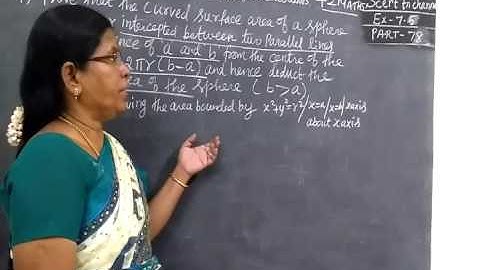 Prove that the curved surface area of a sphere
intercepted between two Parallel lines
of a and b from the centre of the
2πr (b-a) and hence deduct the
of the sphere (b>a)
the area bounded by x²+y²=r², x=a, x=b, x axis
about x axis
+2 MATHS
to channel
Ex-7.5
PART-78